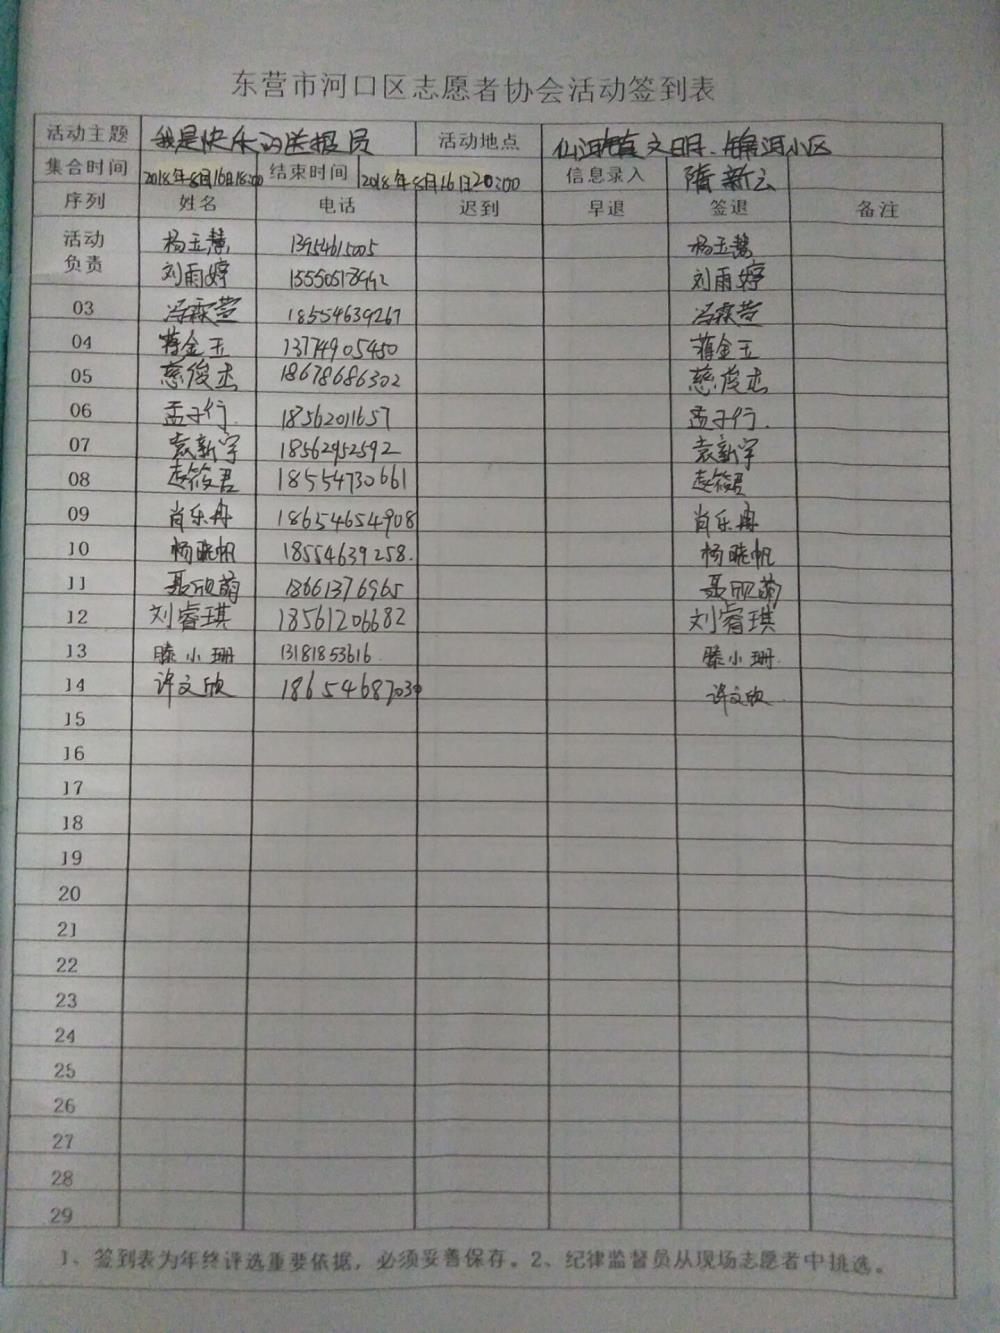 东营市河口区志愿者协会活动签到表
活动主题 我是快乐的送报员 活动地点 仙河镇文明、锦河小区
集合时间 2018年8月16日18:00 结束时间 2018年8月16日20:00 信息录入 隋新云
序列 姓名 电话 迟到 早退 签退 备注
活动 杨玉慧 13954615005 杨玉慧
负责 刘雨婷 15550518992 刘雨婷
03 冯霖萱 18554639267 冯霖萱
04 蒋金玉 13774905450 蒋金玉
05 慈俊杰 18678686302 慈俊杰
06 孟子行 18562011657 孟子行
07 袁新宇 18562952592 袁新宇
08 赵筱君 18554730661 赵筱君
09 肖乐冉 18654654908 肖乐冉
10 杨晓帆 18554639258. 杨晓帆
11 聂欣萌 18661376965 聂欣萌
12 刘睿琪 18561206682 刘睿琪
13 滕小珊 13181853616 滕小珊
14 许文欣 18654687030 许文欣
15
16
17
18
19
20
21
22
23
24
25
26
27
28
29
1、签到表为年终评选重要依据，必须妥善保存。2、纪律监督员从现场志愿者中挑选。